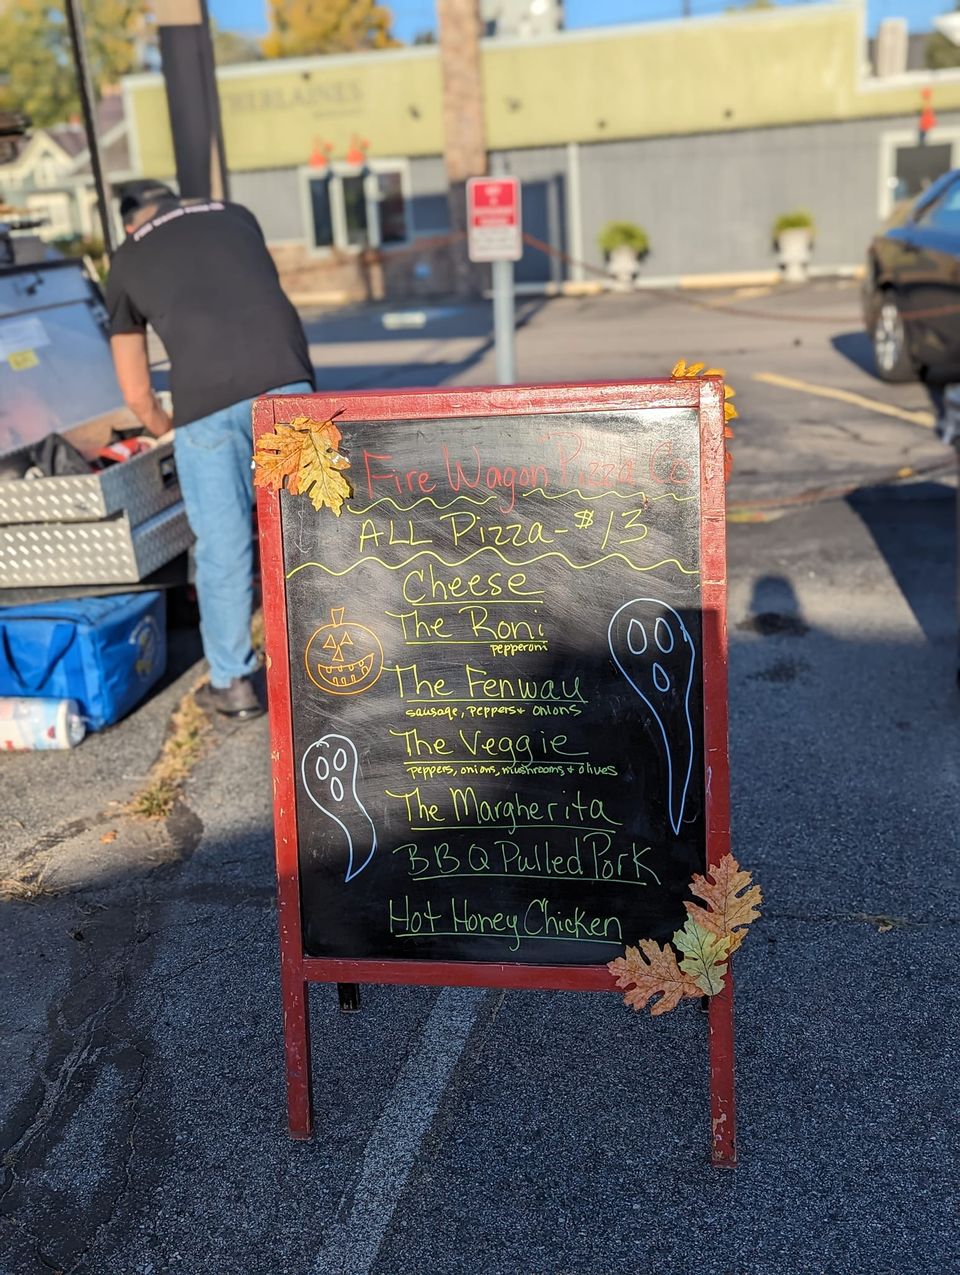 Fire Wagon Pizza Co
ALL Pizza - $13
Cheese
The Roni
pepperoni
The Fenway
sausage, peppers + onions
The Veggie
peppers, onions, mushrooms + olives
The Margherita
BBQ Pulled Pork
Hot Honey Chicken